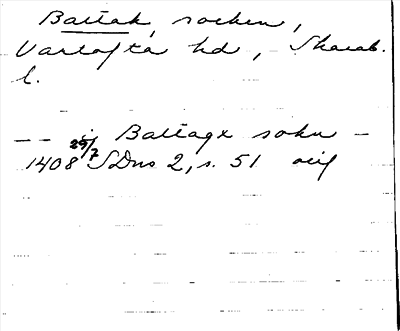 Baltak, socken,
Vartofta hd, Skarab.
l.
-- i Baltagx sokn -
1408 29/7 SDns 2, s. 51 orig